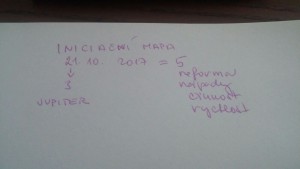 INICIAČNÍ MAPA
21. 10. 2017 = 5
↓ reforma
3 nápady
činnost
JUPITER rychlost